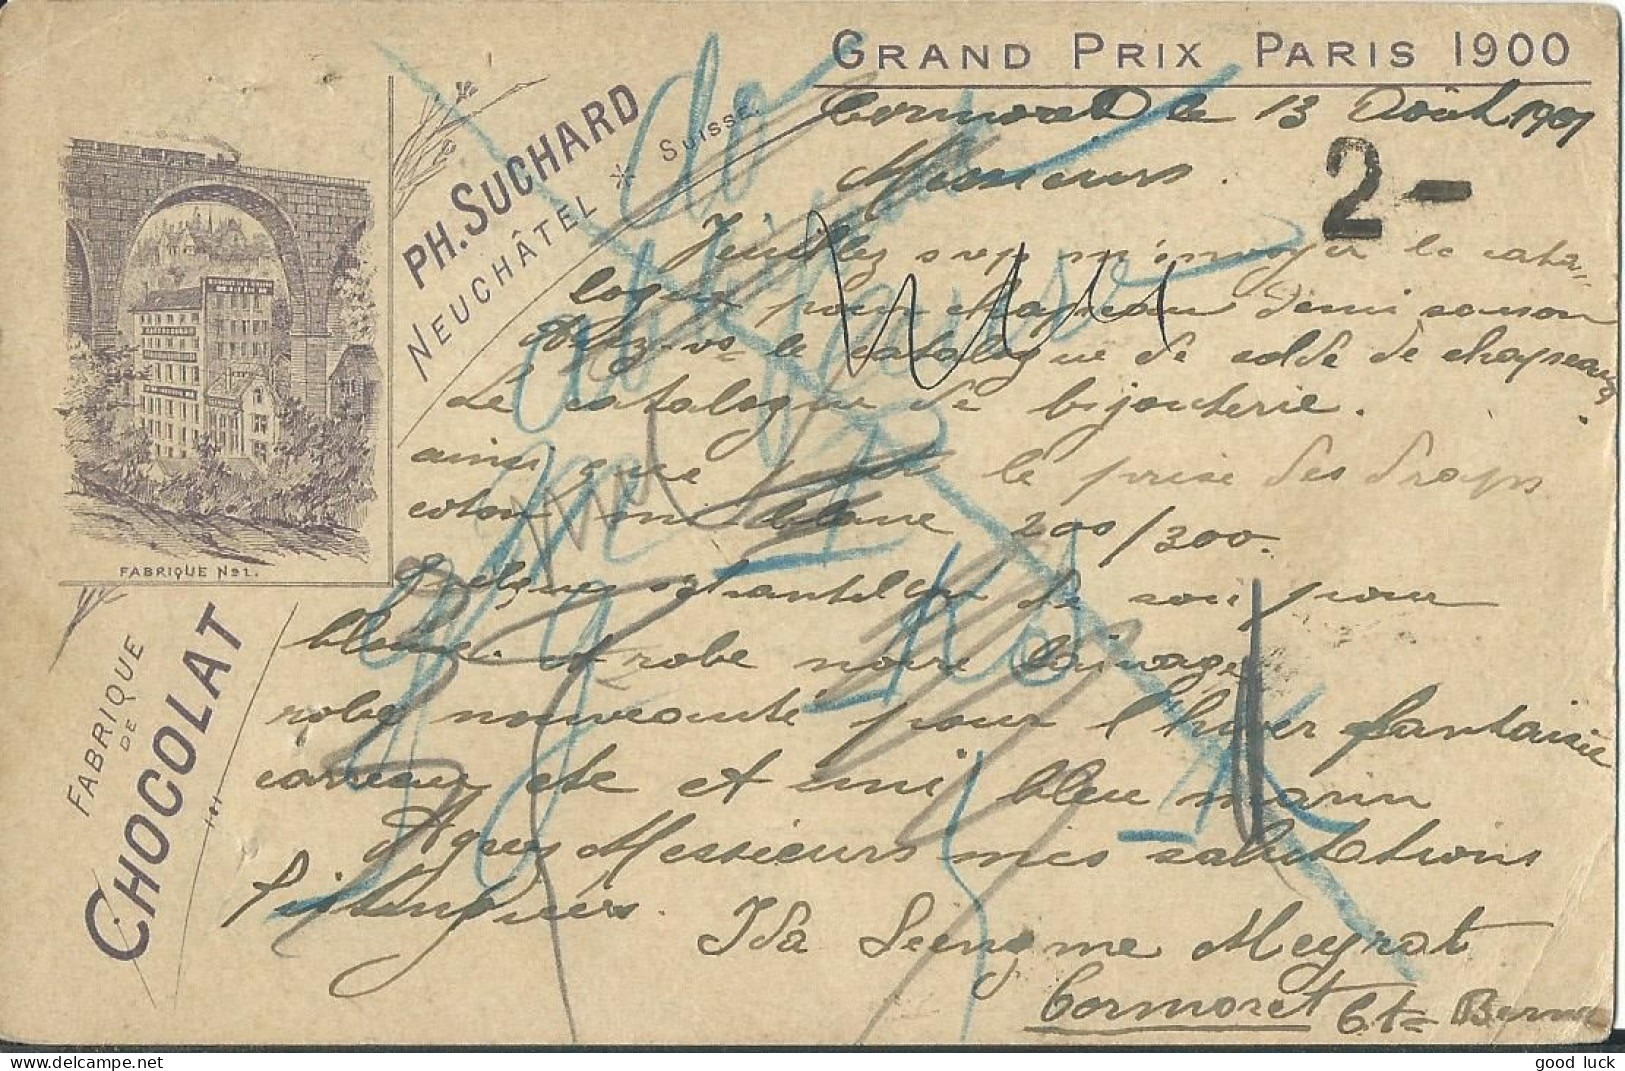 GRAND PRIX PARIS 1900
PH. SUCHARD
NEUCHÂTEL * SUISSE.
FABRIQUE No 1.
FABRIQUE
DE
CHOCOLAT
Cormoret le 13 Août 1901
2-
Messieurs.
Veuillez svp m'envoyer le cata-
logue pour chapeau demi saison
le catalogue de solde de chapeaux
Le catalogue de bijouterie.
ainsi que le prise des draps
coton blanc 200/300.
Quelques échantillons de soie pour
blouse et robe noire lainage
robe nouveauté pour l'hiver fantaisie
carreaux etc et uni bleu marin
Agreez Messieurs mes salutations
distinguées.
Ida Meyrat
Cormoret Ct= Berne
good luck